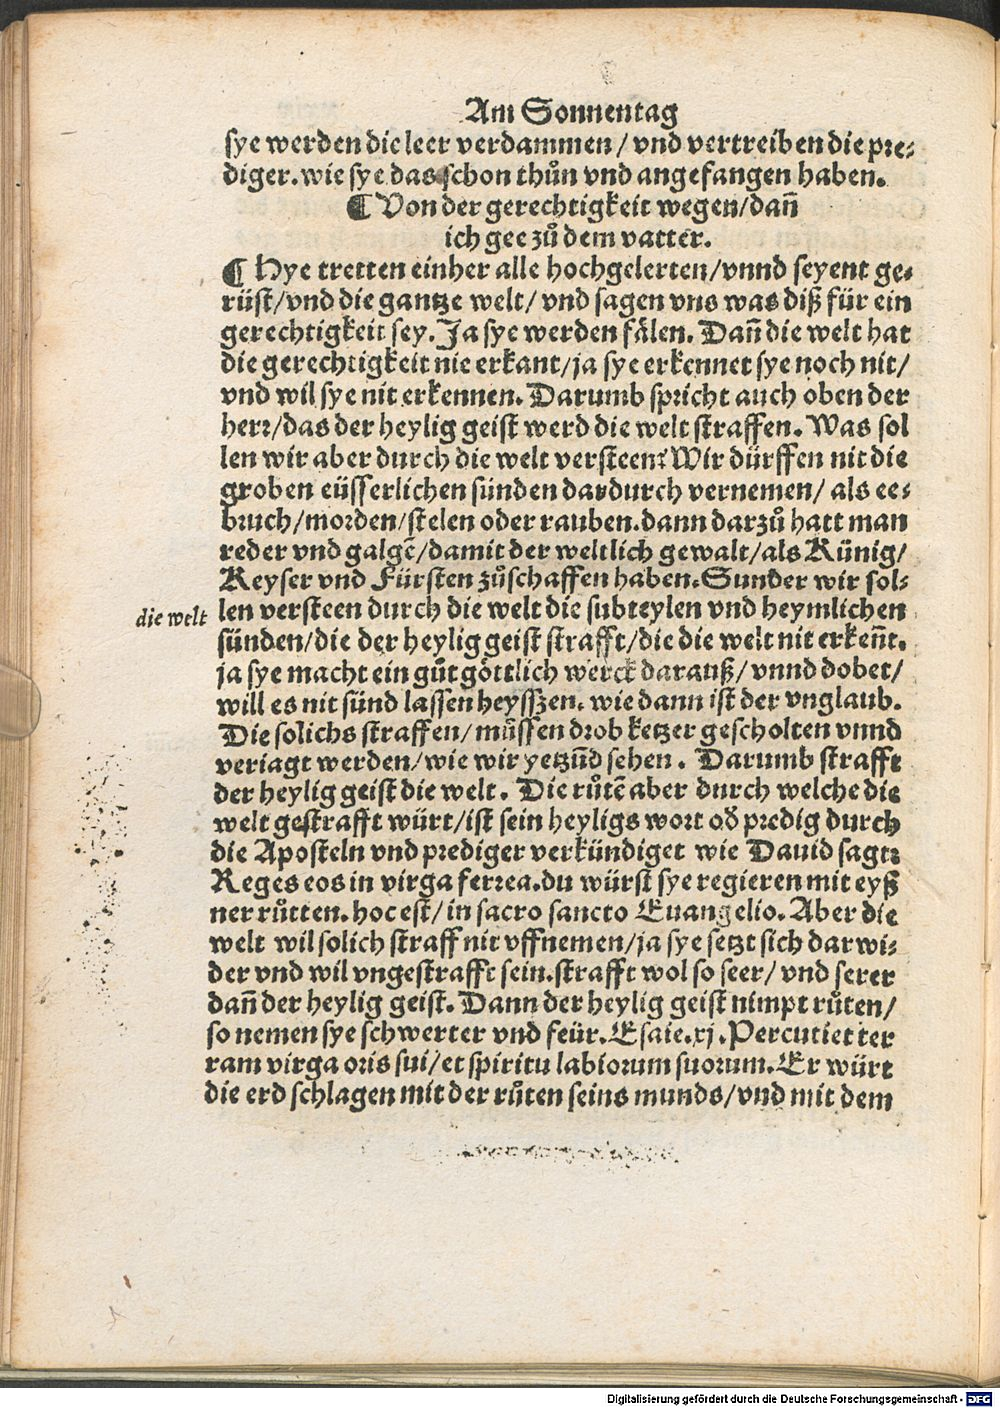 Am Sonnentag
sye werden die leer verdammen / vnd vertreiben die pre⸗
diger. wie sye das schon thůn vnd angefangen haben.
¶ Von der gerechtigkeit wegen / dañ
ich gee zů dem vatter.
¶ Hye tretten einher alle hochgelerten / vnnd seyent ge⸗
rüst / vnd die gantze welt / vnd sagen vns was diß für ein
gerechtigkeit sey. Ja sye werden fälen. Dañ die welt hat
die gerechtigkeit nie erkant / ja sye erkennet sye noch nit /
vnd wil sye nit erkennen. Darumb spricht auch oben der
herr / das der heylig geist werd die welt straffen. Was sol
len wir aber durch die welt versteen? Wir dürffen nit die
groben eüsserlichen sünden dardurch vernemen / als ee⸗
bruch / morden / stelen oder rauben. dann darzů hatt man
reder vnd galgẽ / damit der weltlich gewalt / als Künig /
Keyser vnd Fürsten zůschaffen haben. Sunder wir sol⸗
die welt
len versteen durch die welt die subteylen vnd heymlichen
sünden / die der heylig geist strafft / die die welt nit erkeñt.
ja sye macht ein gůt göttlich werck darauß / vnnd dobet /
will es nit sünd lassen heysszen. wie dann ist der vnglaub.
Die solichs straffen / můssen drob ketzer gescholten vnnd
veriagt werden / wie wir yetzũd sehen. Darumb strafft
der heylig geist die welt. Die růtẽ aber durch welche die
welt gestrafft würt / ist sein heyligs wort od̃ predig durch
die Aposteln vnd prediger verkündiget wie Dauid sagt:
Reges eos in virga ferrea. du würst sye regieren mit eyß
ner růtten. hoc est / in sacro sancto Euangelio. Aber die
welt wil solich straff nit vffnemen / ja sye setzt sich darwi⸗
der vnd wil vngestrafft sein. strafft wol so seer / vnd serer
dañ der heylig geist. Dann der heylig geist nimpt růten /
so nemen sye schwerter vnd feür. Esaie. xj. Percutiet ter
ram virga oris sui / et spiritu labiorum suorum. Er würt
die erd schlagen mit der růten seins munds / vnd mit dem
Digitalisierung gefördert durch die Deutsche Forschungsgemeinschaft - DFG